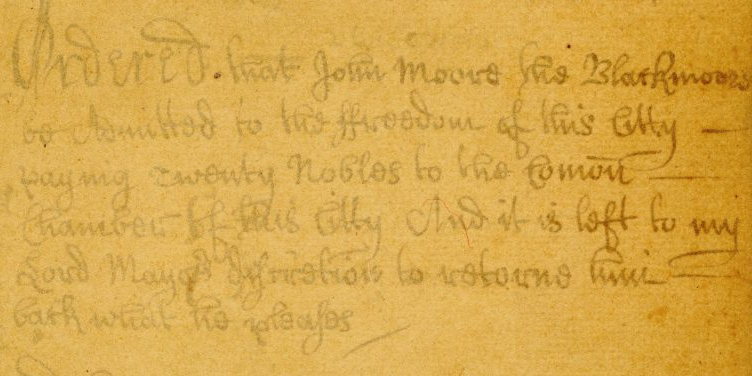 Ordered. that John Moore the Blackmoore
be Admitted to the ffreedom of this Citty
paying twenty Nobles to the Comon
Chamber of this Citty And it is left to my
Lord Mayors discretion to retorne him
back what he pleases